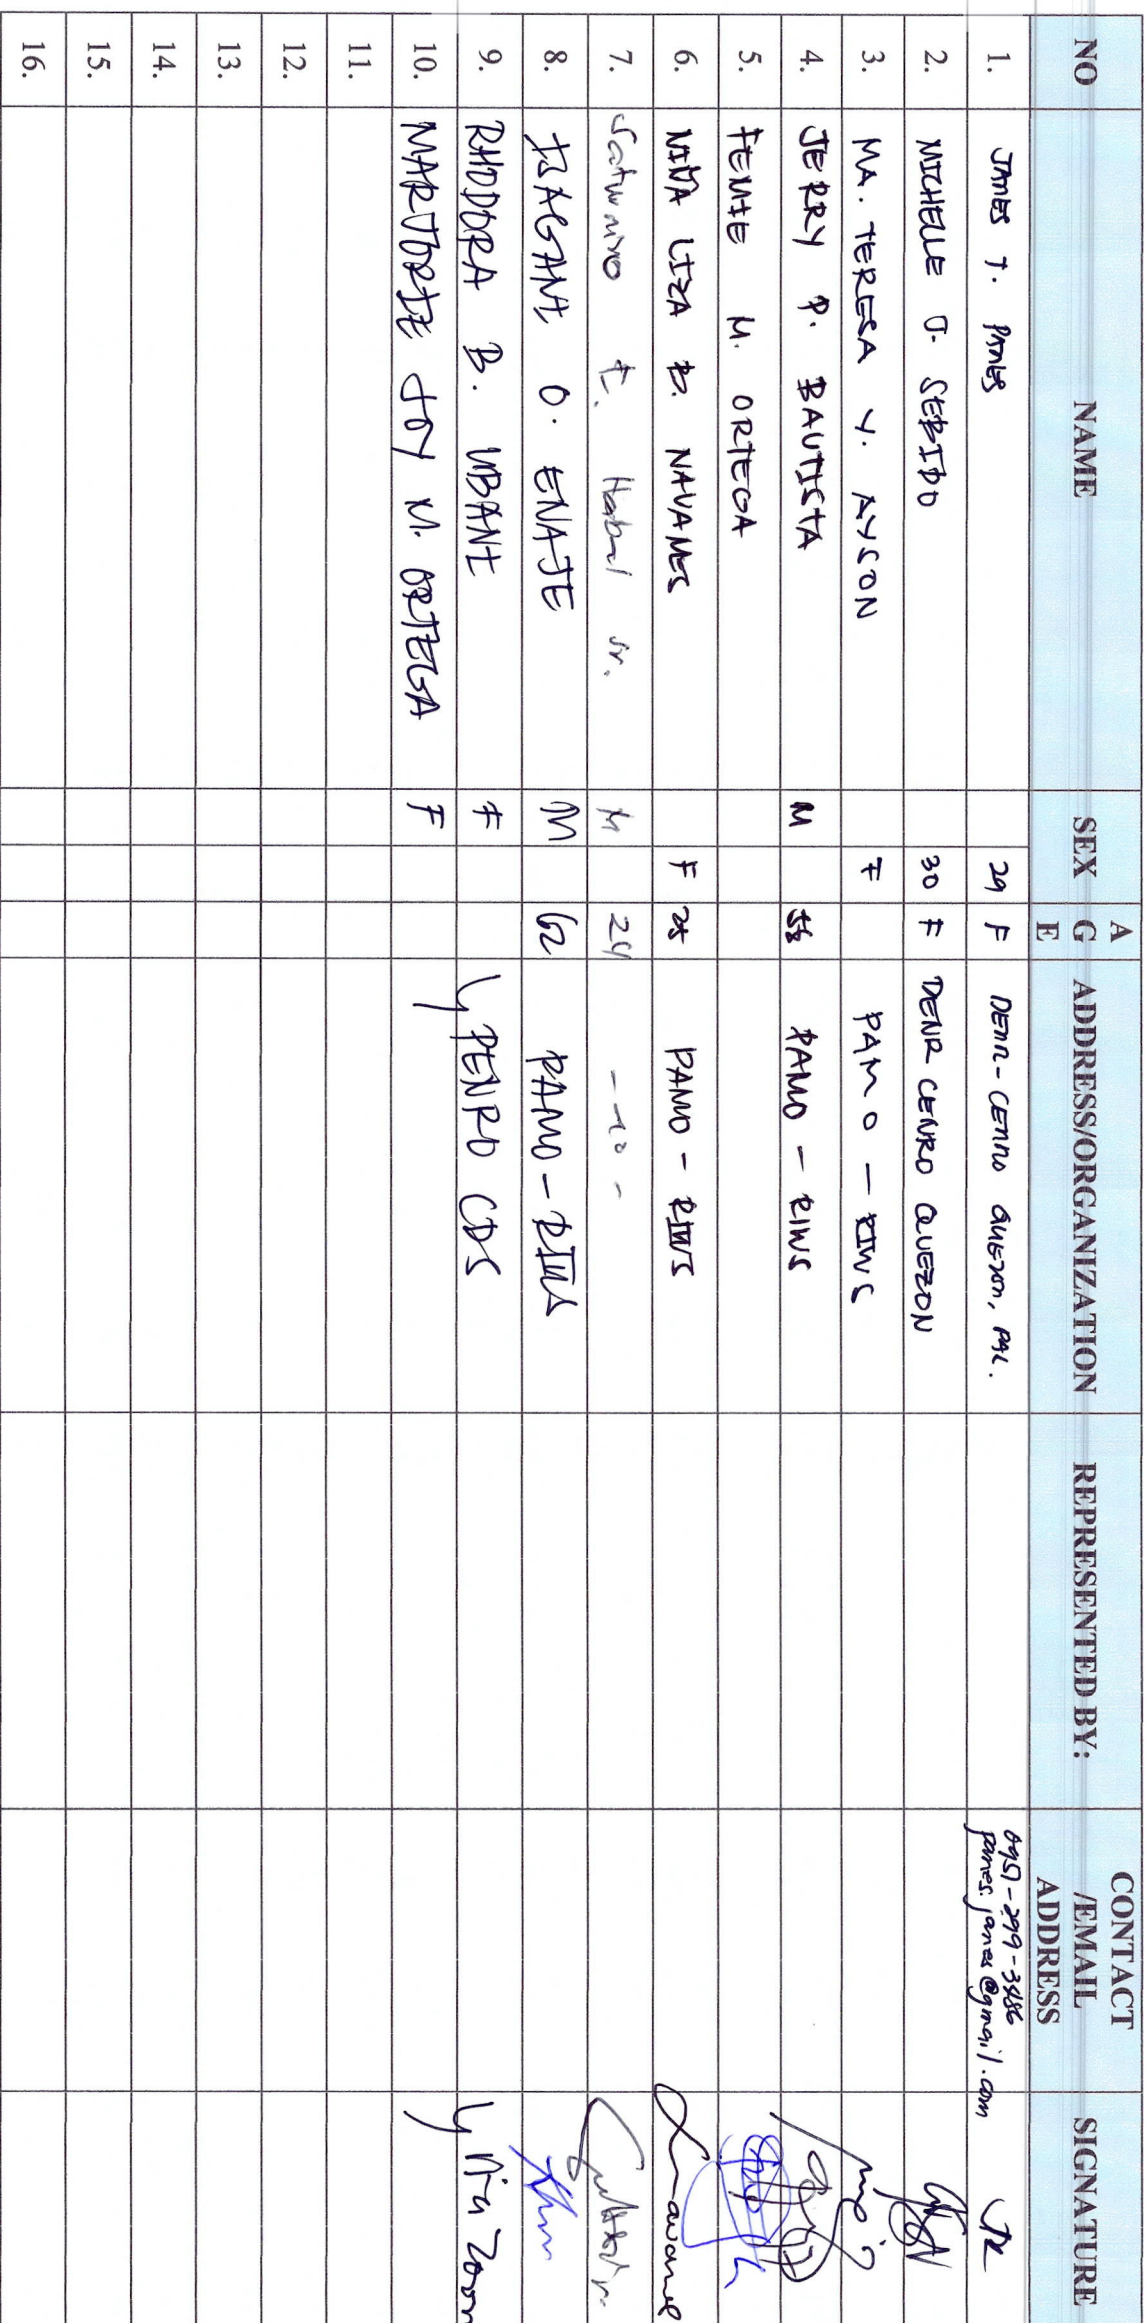 NO NAME SEX AGE ADDRESS/ORGANIZATION REPRESENTED BY: CONTACT /EMAIL ADDRESS SIGNATURE
1. JANES T. PANES 29 F DENR-CENRO QUEZON, PAL. 0951-299-3486
panes.janes@gmail.com
2. MICHELLE O. SEBIDO 30 F DENR CENRO QUEZON
3. MA. TERESA Y. AYSON F PAMO - RIWS
4. JERRY P. BAUTISTA M 58 PAMO - RIWS
5. FEMIE M. ORTEGA
6. NIÑA LIZA D. NAVAMES F 25 PAMO - RIWS
7. Saturnino E. Habal Jr. M 24
8. ISAGANI O. ENAJE M 62 PAMO - RIWS
9. RHODORA B. UBANI F PENRO CDS Via Zoom
10. MARJORIE JOY M. ORTEGA F
11.
12.
13.
14.
15.
16.